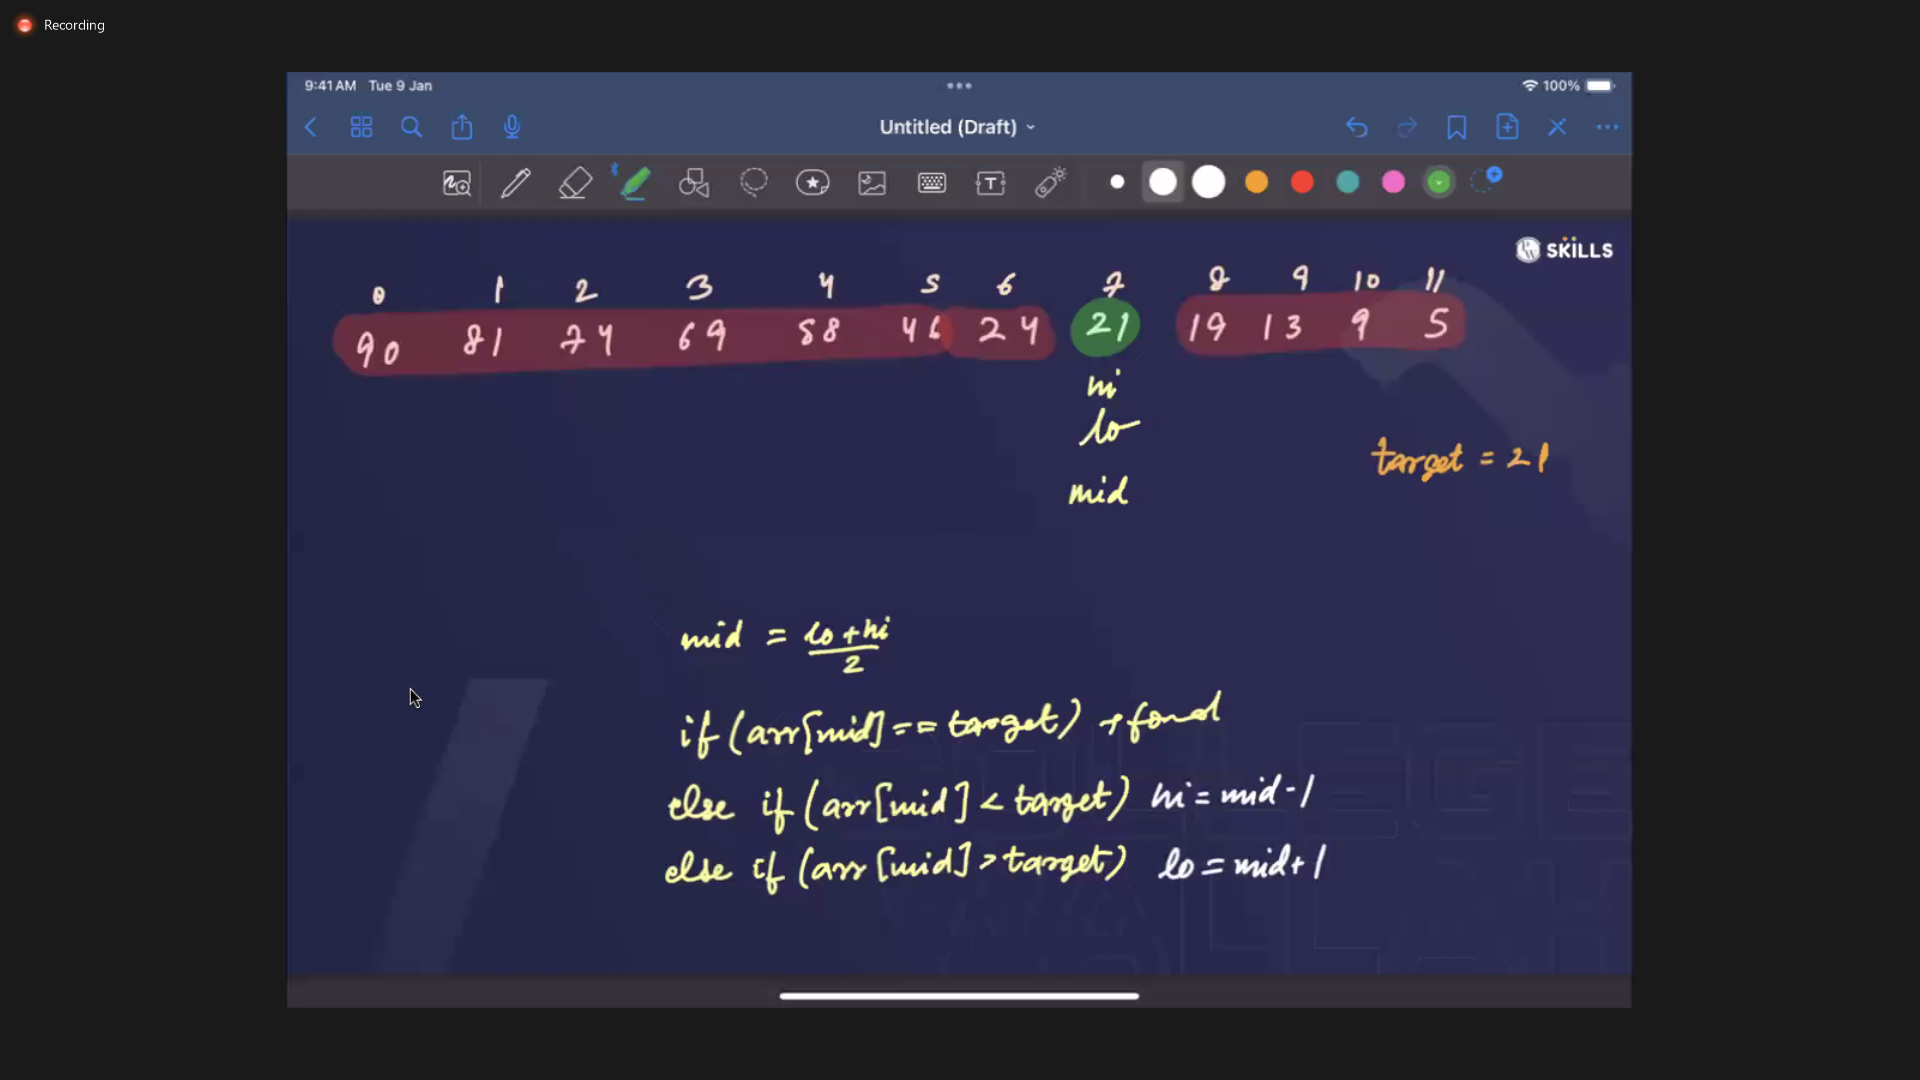 Recording
9:41 AM Tue 9 Jan
100%
Untitled (Draft)
T
SKILLS
0 1 2 3 4 5 6 7 8 9 10 11
90 81 74 69 58 46 24 21 19 13 9 5
hi
lo
target = 21
mid
mid = lo + hi
2
if (arr[mid] == target) → found
else if (arr[mid] < target) hi = mid - 1
else if (arr[mid] > target) lo = mid + 1